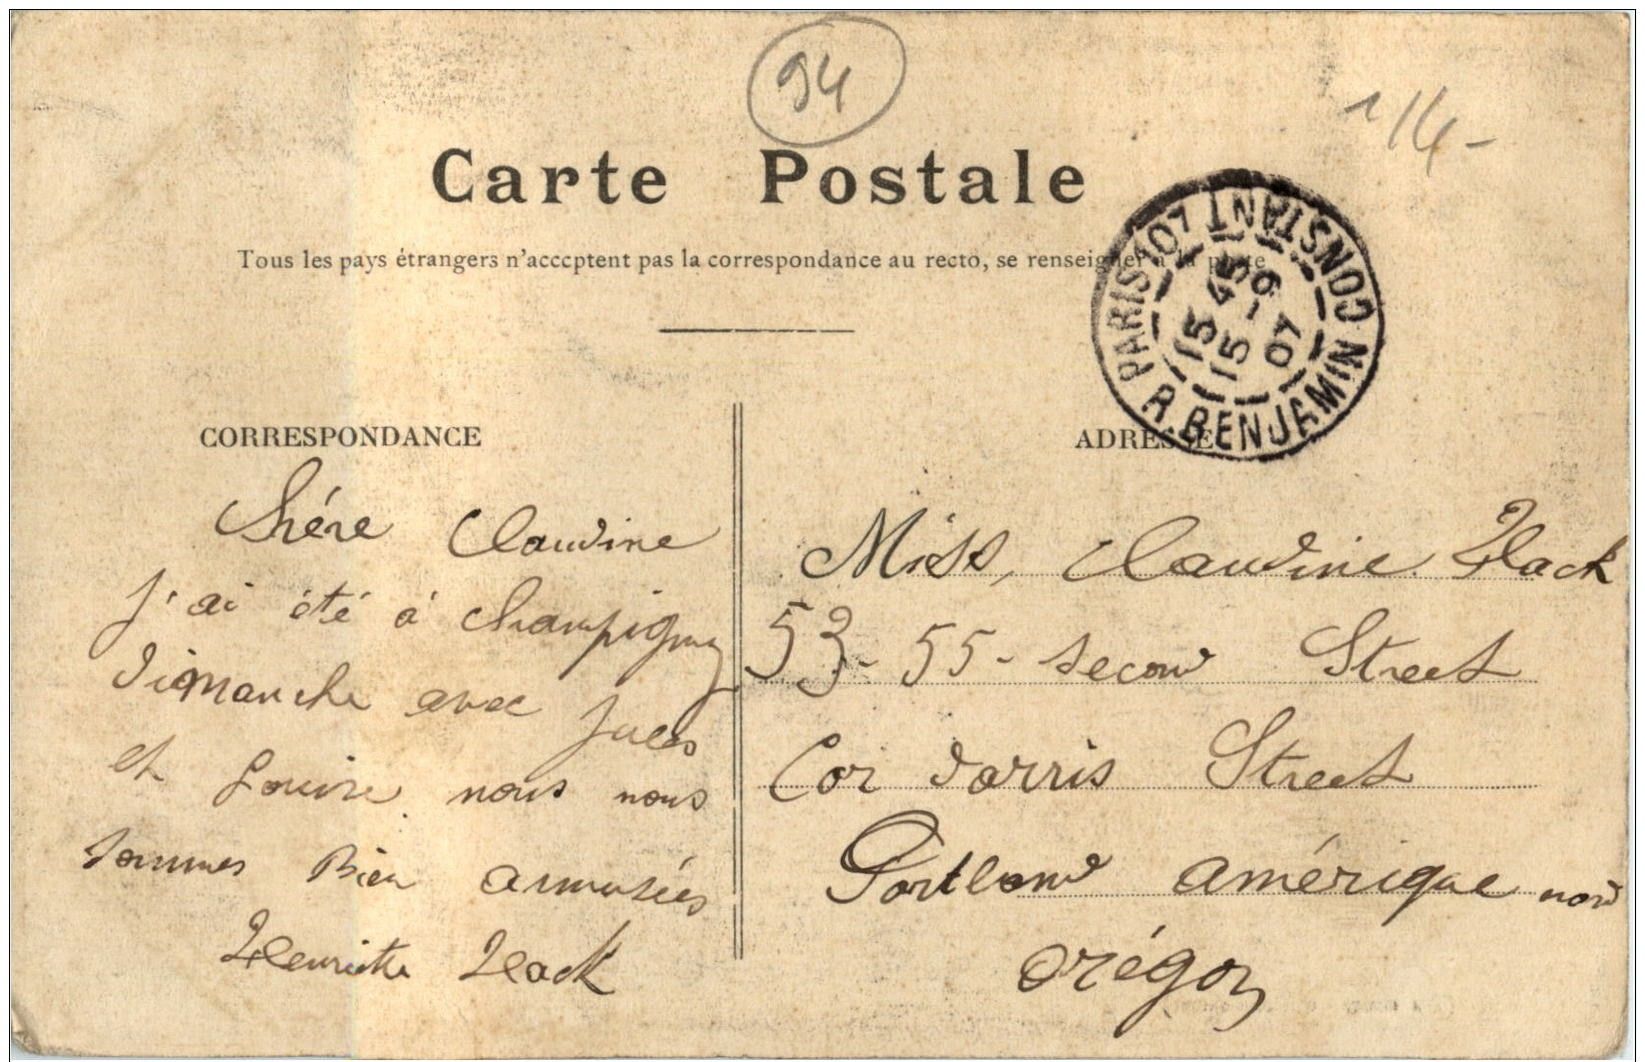 94
1/4-
Carte Postale
Tous les pays étrangers n'acccptent pas la correspondance au recto, se renseigner à la poste
PARIS 107 R. BENJAMIN CONSTANT
15 45
15 - 9
07
CORRESPONDANCE
ADRESSE
Chére Claudine
J'ai été á Champigny
dimanche avec Jules
et Louise nous nous
sommes Bien amusées
Henriette Hack
Miss, Claudine Hack
53-55-Second Street
Cor darris Street
Portland amérique nord
orégon